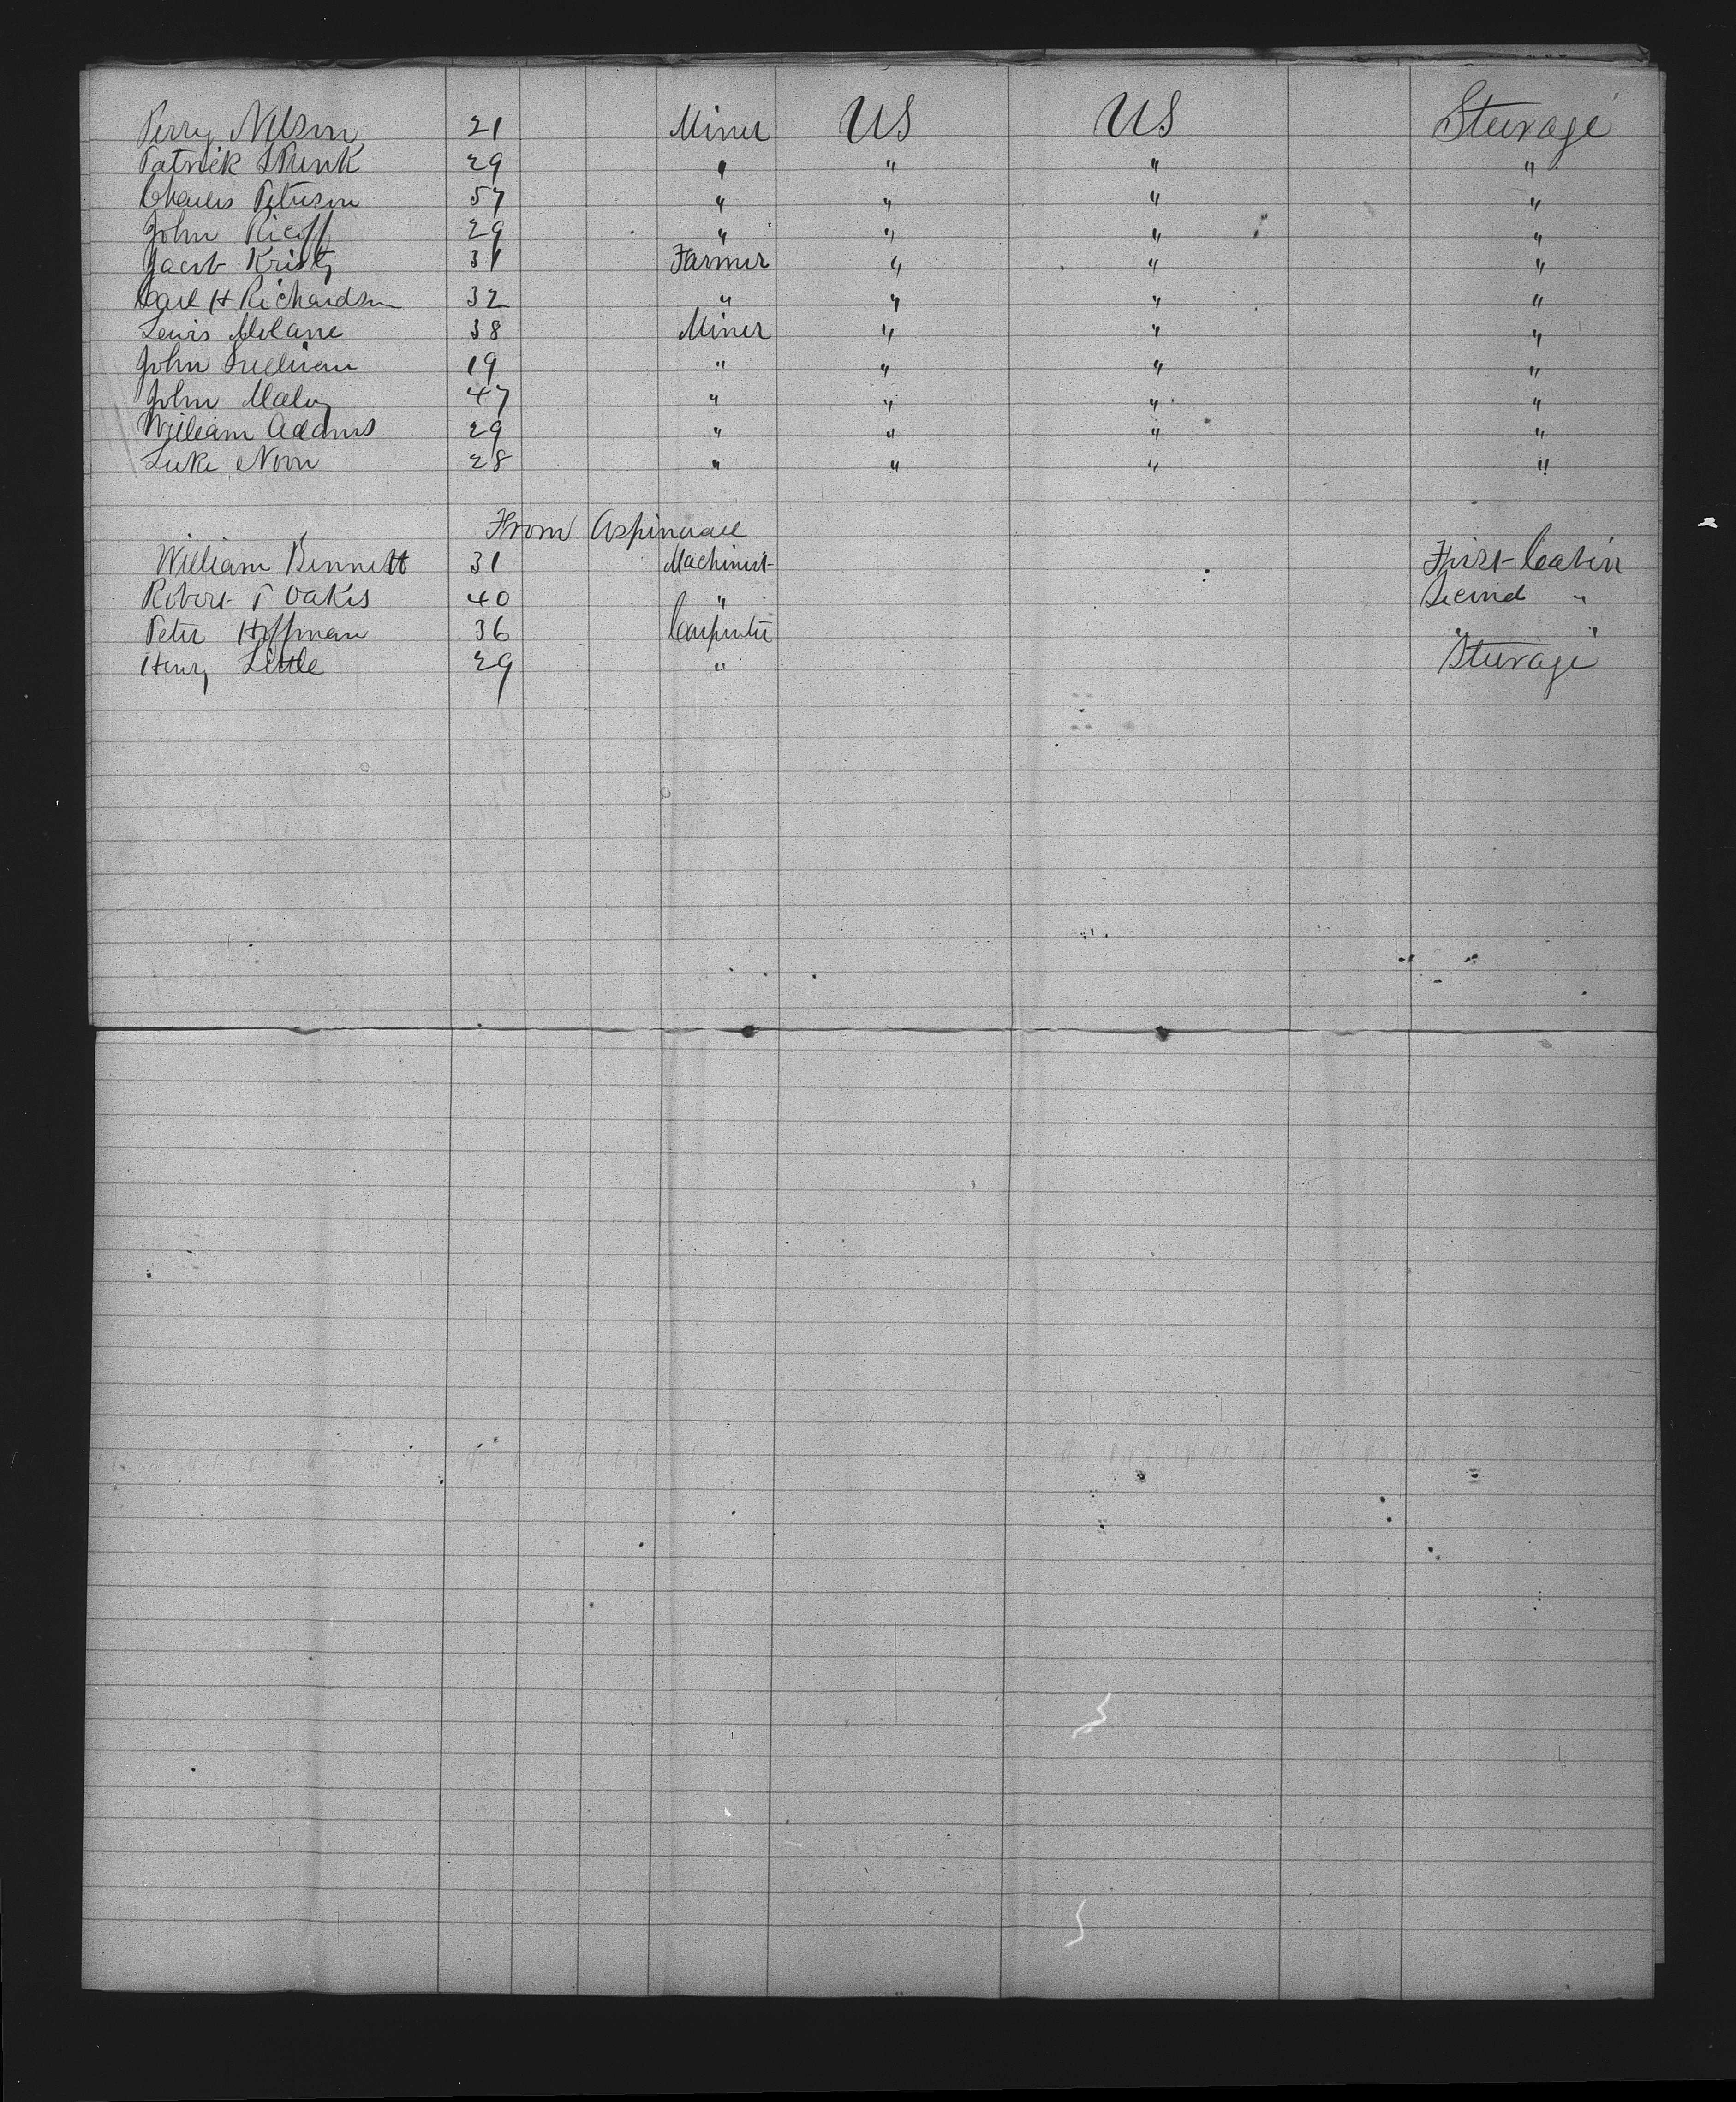 Perry Nelson 21 Miner US US Steerage
Patrick Skunk 29 " " " "
Charles Peterson 57 " " " "
John Ricoff 29 " " " "
Jacob Kristy 31 Farmer " " "
Carl H Richardson 32 " " " "
Lewis Melane 38 Miner " " "
John Sullivan 19 " " " "
John Maloy 47 " " " "
William Adams 29 " " " "
Luke Noon 28 " " " "
From Aspinwall
William Bennett 31 Machinist First Cabin
Robert T Oakes 40 " Second "
Peter Hoffman 36 Carpenter " "
Henry Little 29 " Steerage